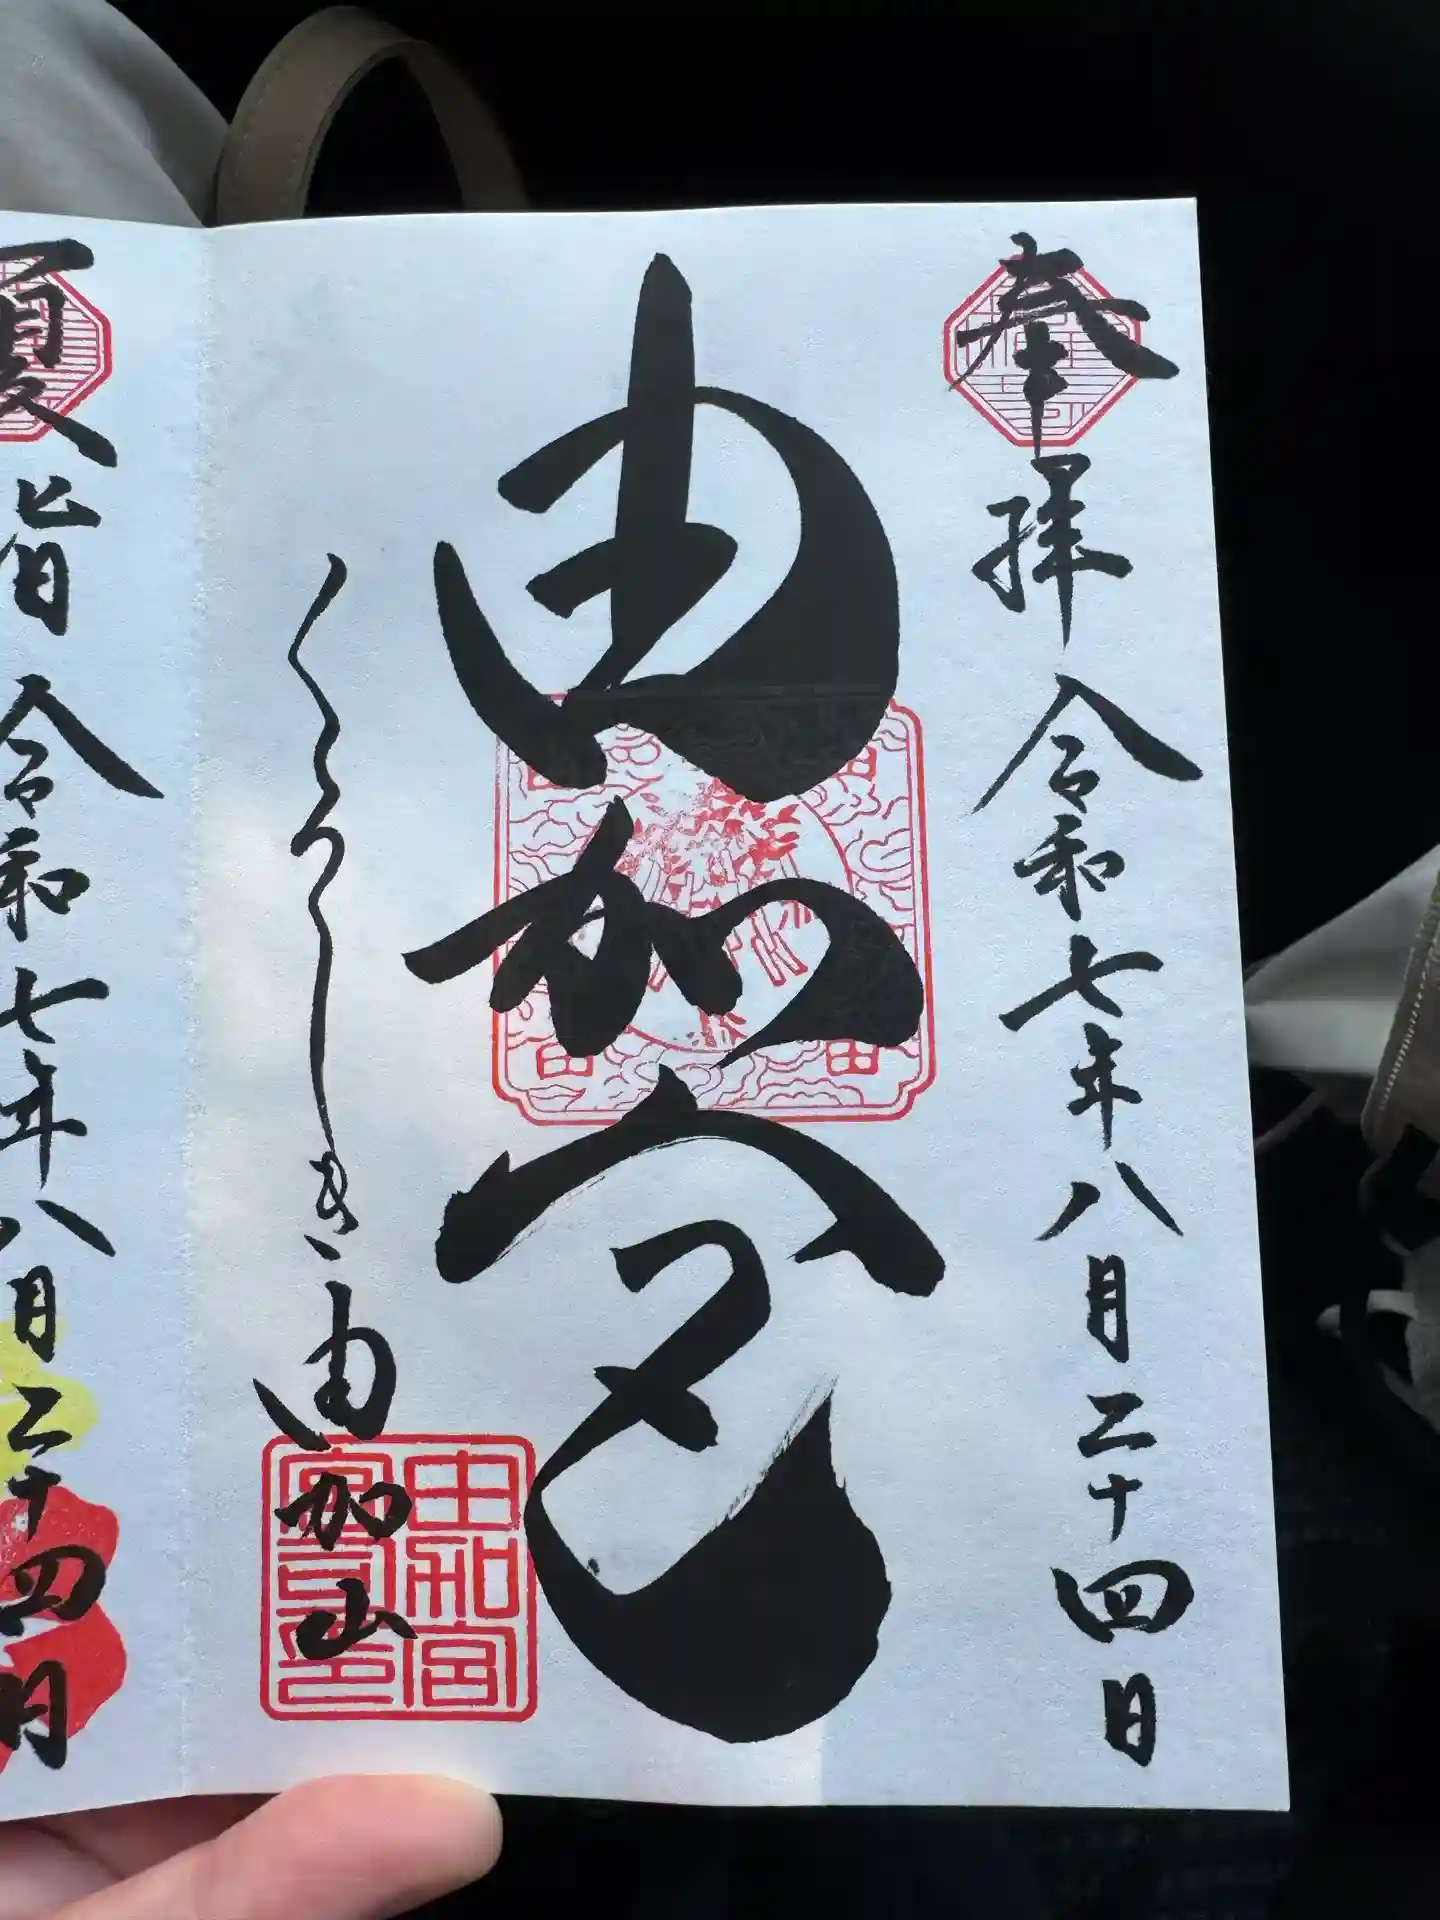 奉拝 令和七年八月二十四日
由加宮
くらしき由加山
由加宮
夏詣 令和七年八月二十四日